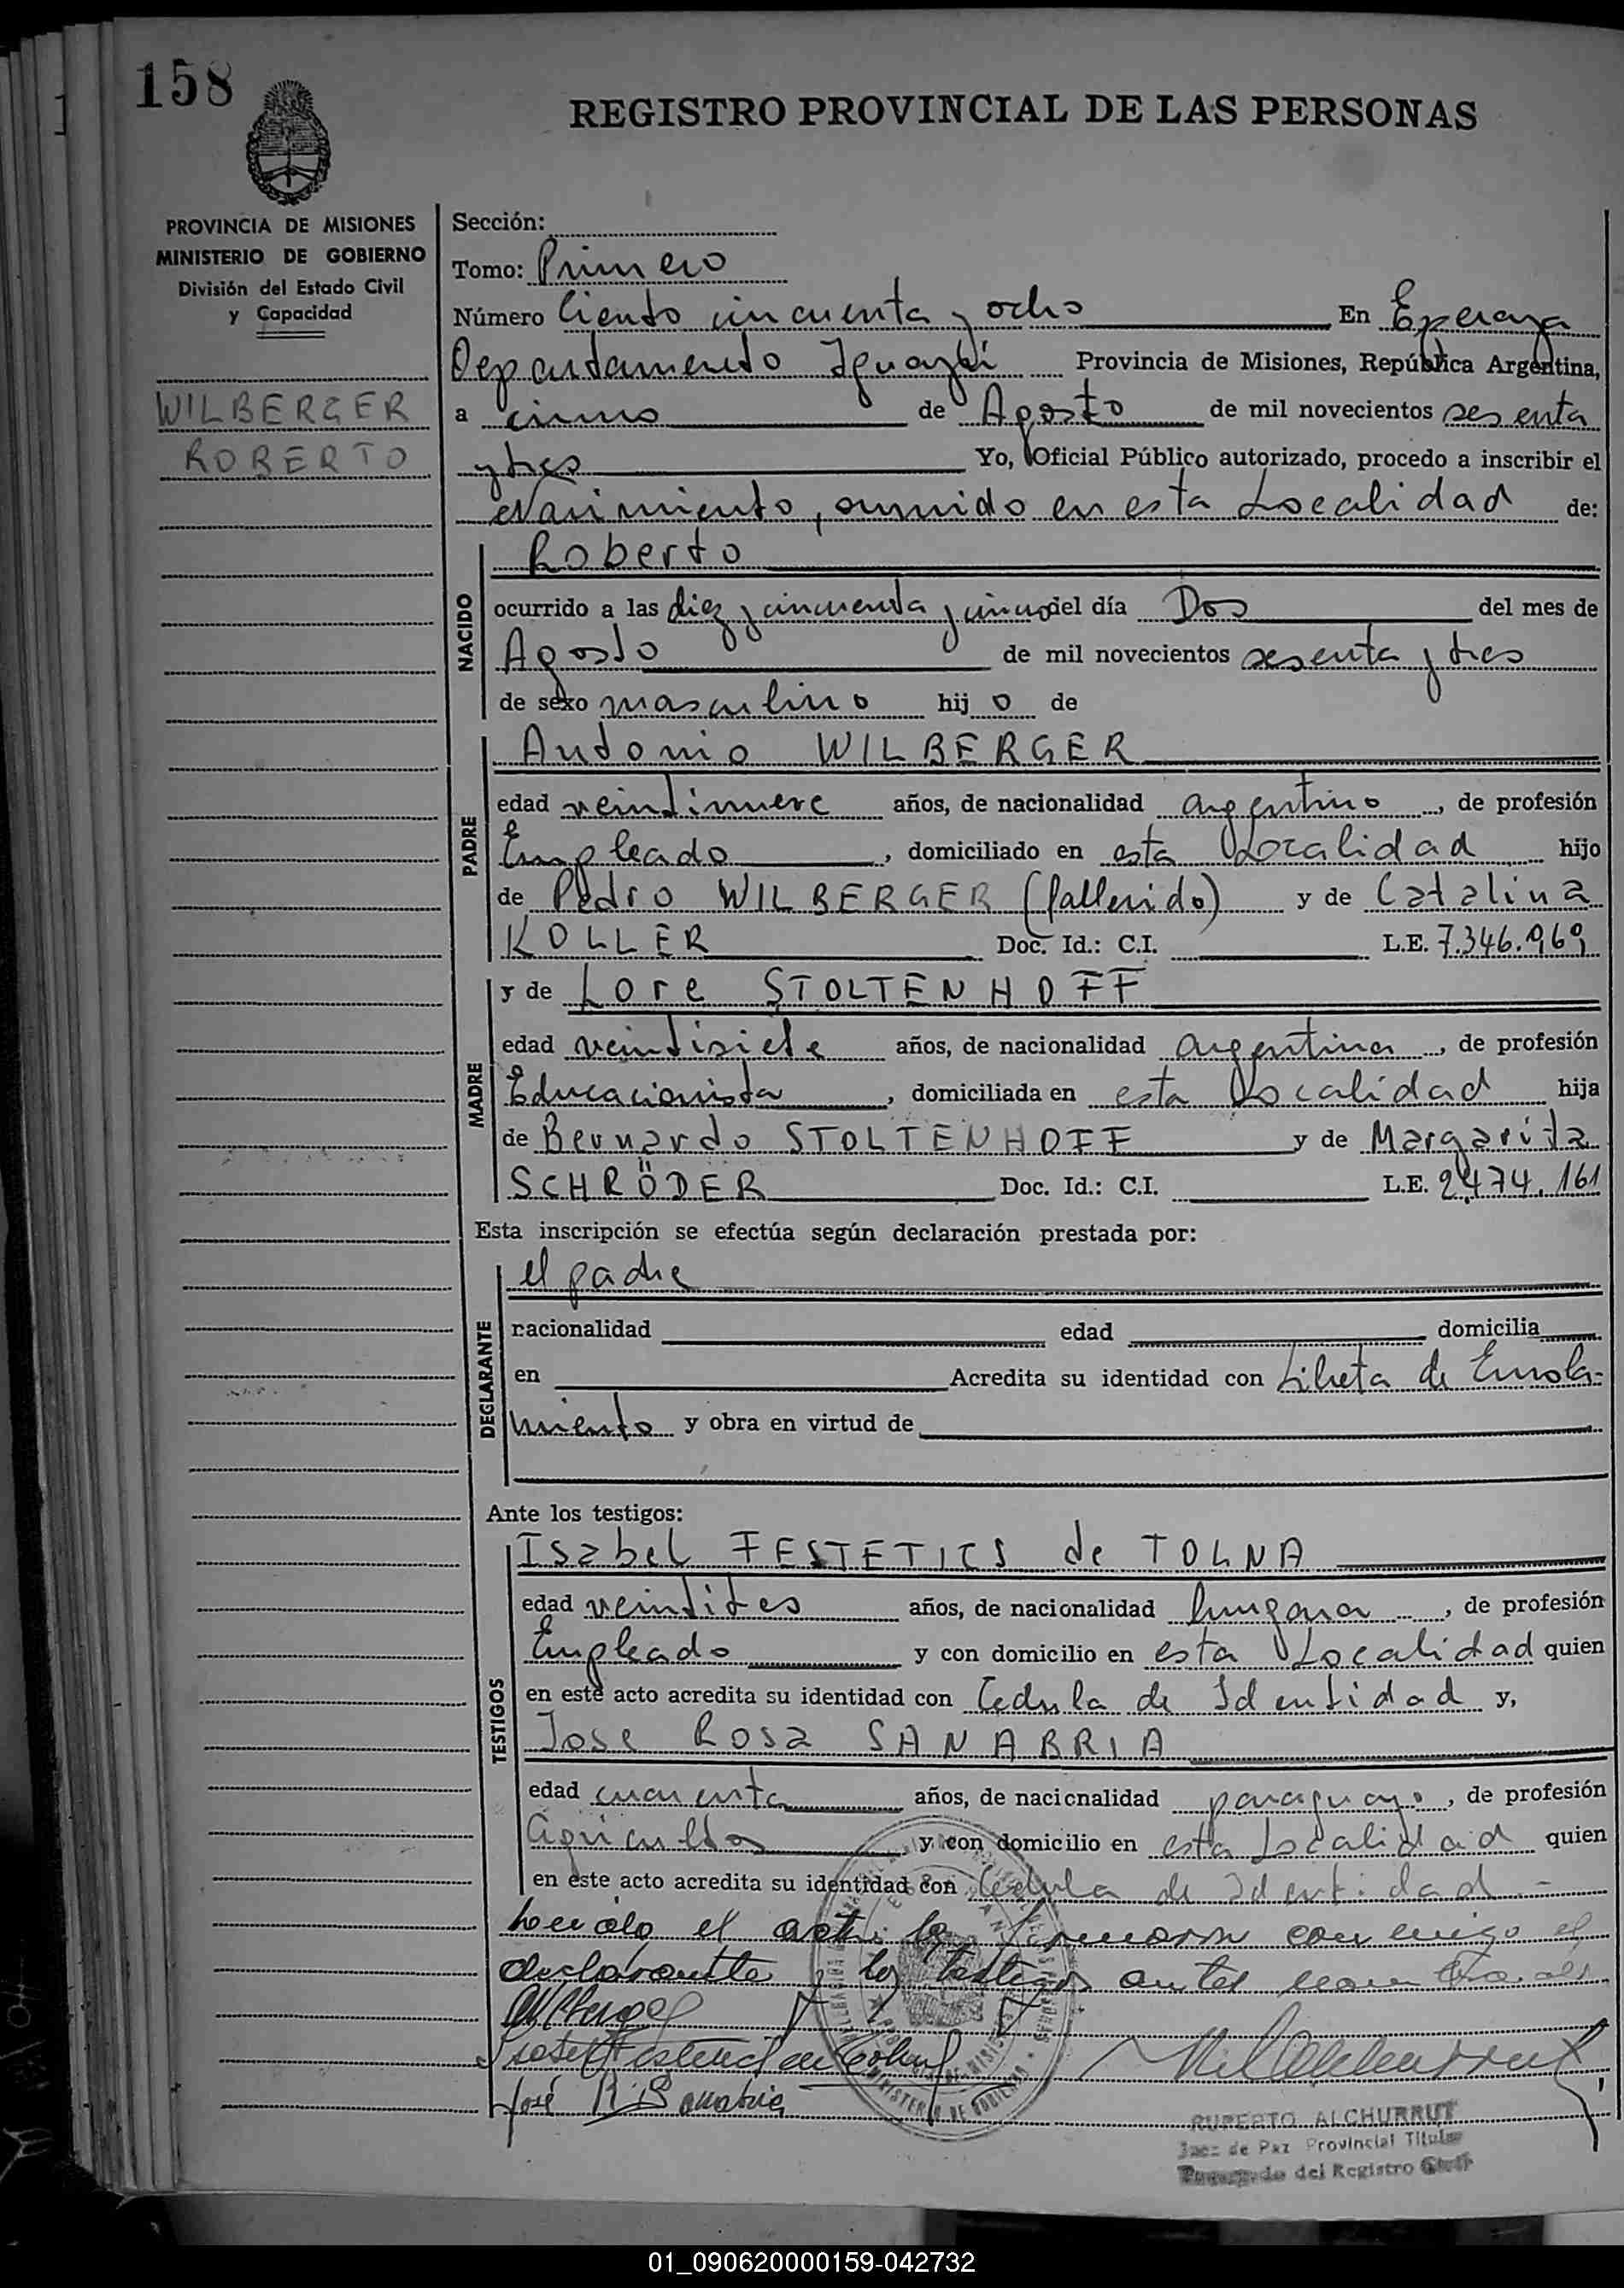 158
REGISTRO PROVINCIAL DE LAS PERSONAS
PROVINCIA DE MISIONES
MINISTERIO DE GOBIERNO
División del Estado Civil
y Capacidad
WILBERGER
ROBERTO
Sección:
Tomo: Primero
Número Ciento cincuenta y ocho En Esperanza
Departamento Iguazú Provincia de Misiones, República Argentina,
a cinco de Agosto de mil novecientos sesenta
y tres Yo, Oficial Público autorizado, procedo a inscribir el
Nacimiento, ocurrido en esta Localidad de:
NACIDO
Roberto
ocurrido a las diez y cincuenta y cinco del día Dos del mes de
Agosto de mil novecientos sesenta y tres
de sexo masculino hij o de
PADRE
Antonio WILBERGER
edad veintinueve años, de nacionalidad argentino, de profesión
Empleado, domiciliado en esta Localidad hijo
de Pedro WILBERGER (fallecido) y de Catalina
KOLLER Doc. Id.: C.I. L.E. 7.346.969
MADRE
y de Lore STOLTENHOFF
edad veintisiete años, de nacionalidad argentina, de profesión
Educacionista, domiciliada en esta Localidad hija
de Bernardo STOLTENHOFF y de Margarita
SCHRÖDER Doc. Id.: C.I. L.E. 2.474.161
Esta inscripción se efectúa según declaración prestada por:
DECLARANTE
el padre
nacionalidad edad domicilia
en Acredita su identidad con Libreta de Enrola-
miento y obra en virtud de
Ante los testigos:
TESTIGOS
Isabel FESTETICS de TOLNA
edad veintitres años, de nacionalidad hungara, de profesión
Empleado y con domicilio en esta Localidad quien
en este acto acredita su identidad con Cedula de Identidad y,
Jose Rosa SANABRIA
edad cuarenta años, de nacionalidad paraguayo, de profesión
agricultor y con domicilio en esta Localidad quien
en este acto acredita su identidad con Cedula de Identidad.-
el acta la firmaron conmigo el
declarante y los testigos antes
José R. Sanabria
RUPERTO ALCHURRUT
Juez de Paz Provincial Titular
Encargado del Registro Civil
01_090620000159-042732